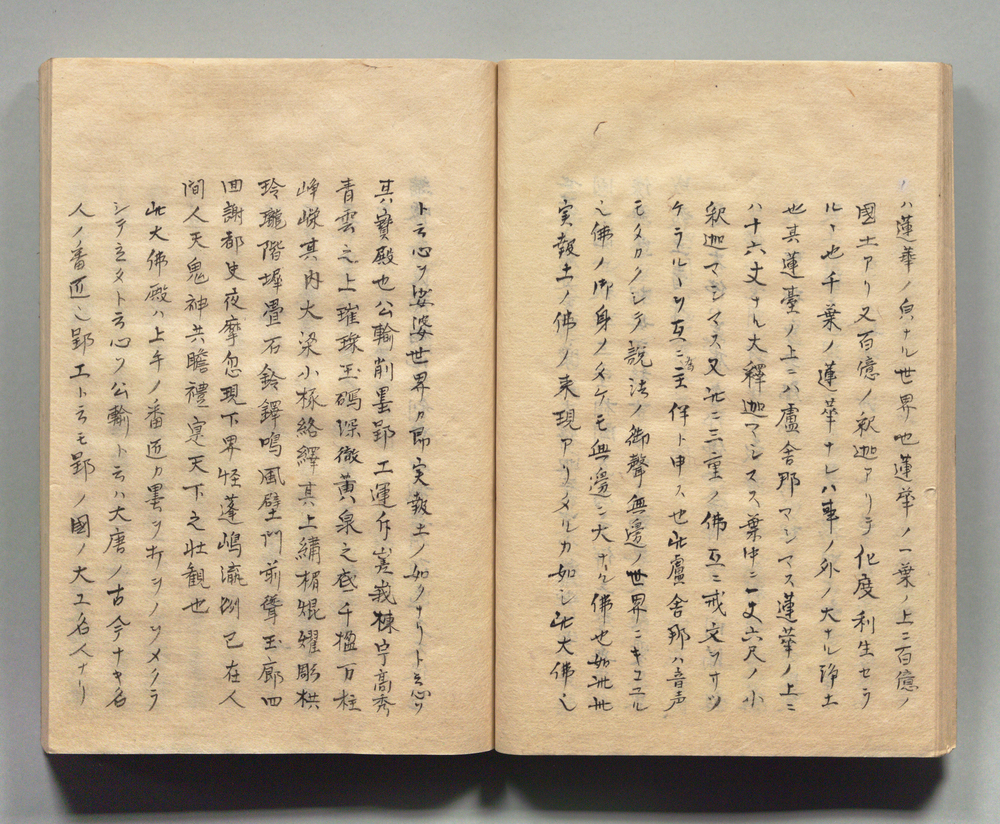 ハ蓮華ノ自ナル世界也蓮華ノ一葉ノ上ニ百億ノ
國土アリ又百億ノ釈迦アリテ化度利生セラ
ルヽ也千葉ノ蓮華ナレハ華ノ外ノ大ナル浄土
也其蓮臺ノ上ニハ盧舎那マシマス蓮華ノ上ニ
ハ十六丈ナル大釋迦マシマス葉中ニ一丈六尺ノ小
釈迦マシマス又此二三重ノ佛互ニ戒文ヲサツ
ケラルヽヲ互ニ主伴ト申ス也此盧舎那ハ音声
モタカクシテ説法ノ御聲無邊ノ世界ニキコユル
之佛ノ御身ノタケモ無邊ニ大ナル佛也如此此
実報土ノ佛ノ来現アリタルカ如シ此大佛之
ト云心ヲ娑婆世界カ即実報土ノ如クナリト云心ヲ
其寳殿也公輸削墨郢工運斤嵳峩棟宇高秀
青雲之上璀璨玉磶深徹黄泉之底千楹万柱
崢嶸其内大梁小椓絡繹其上綉楣焜燿彫栱
玲瓏階墀疊石鈴鐸鳴風壁門前聳玉廊四
囬謝都史夜摩忽現下界怪蓬嶋瀛洲已在人
間人天鬼神共瞻禮寔天下之壮観也
此大佛殿ハ上手ノ番匠カ墨ヲ斤ヲノヲメクラ
シテ立タト云心ヲ公輸ト云ハ大唐ノ古今ナキ名
人ノ番匠之郢工ト云モ郢ノ國ノ大工名人ナリ